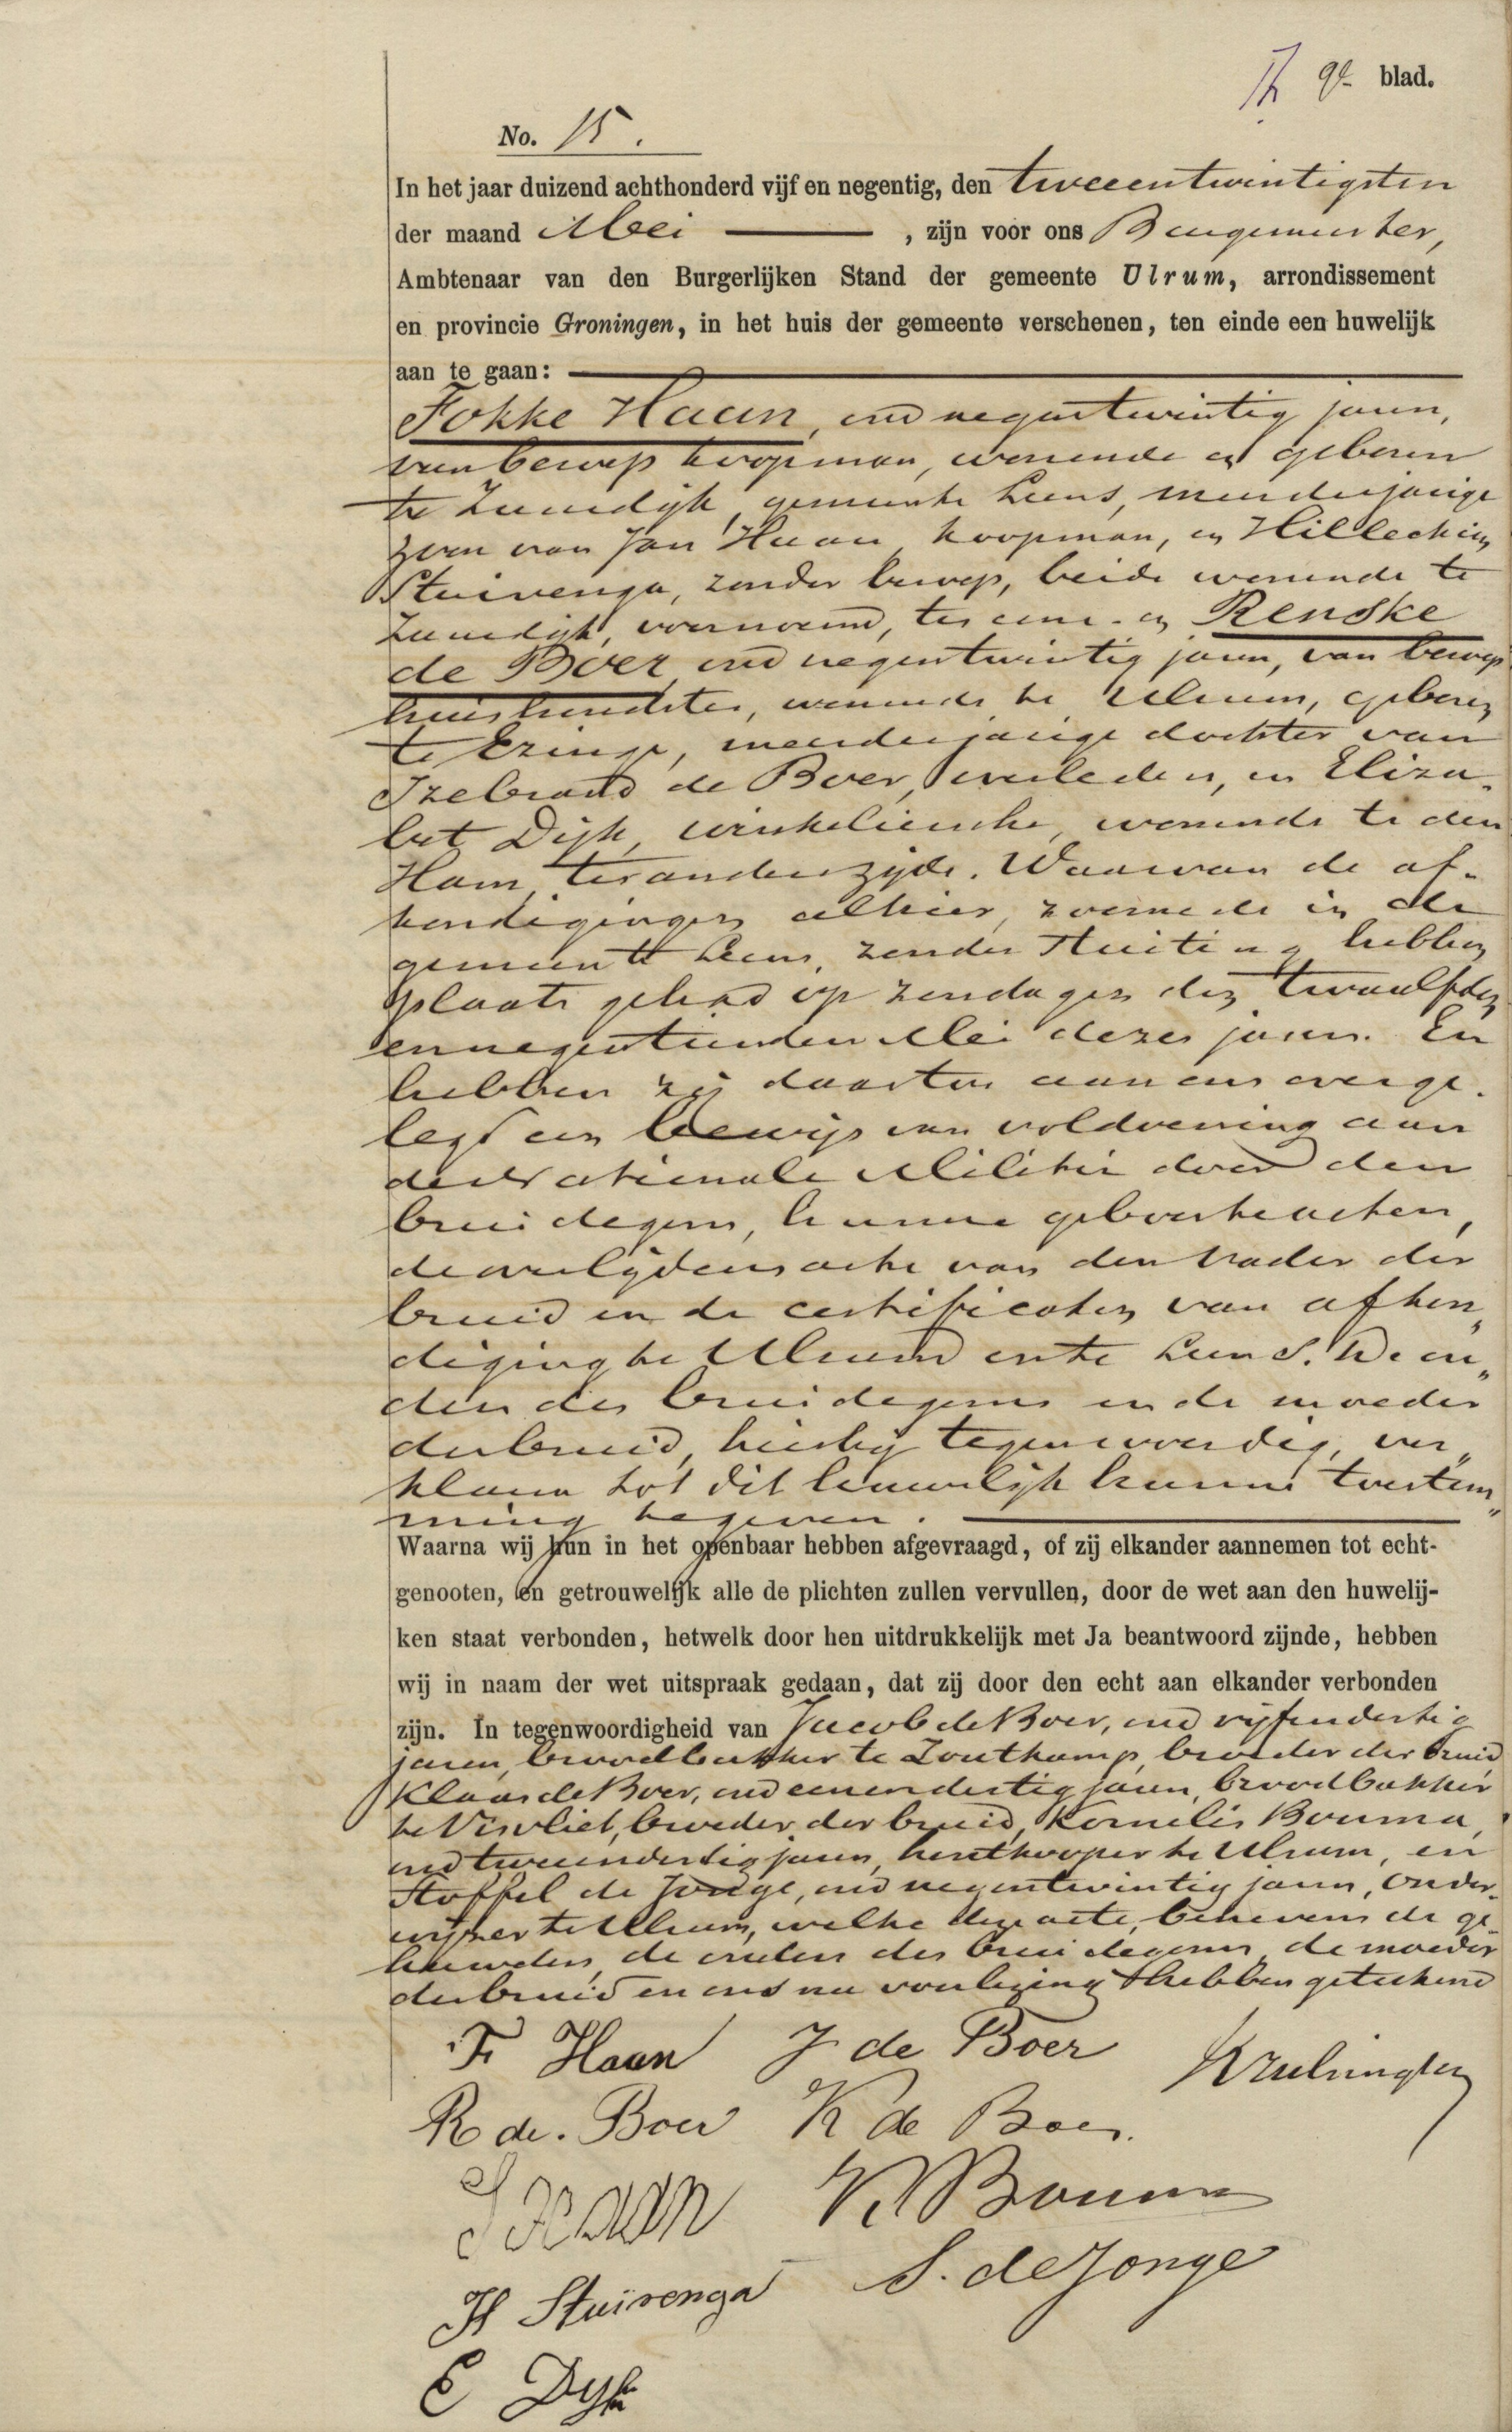 9e blad.
No. 15.
In het jaar duizend achthonderd vijf en negentig, den tweeentwintigsten
der maand Mei , zijn voor ons Burgemeester,
Ambtenaar van den Burgerlijken Stand der gemeente Ulrum, arrondissement
en provincie Groningen, in het huis der gemeente verschenen, ten einde een huwelijk
aan te gaan:
Fokke Haan, oud negentwintig jaren,
van beroep koopman, wonende en geboren
te Zuurdijk, gemeente Leens, meerderjarige
zoon van Jan Haan, koopman, en Hillechien
Stuivenga, zonder beroep, beide wonende te
Zuurdijk, voornoemd, ter eene- en Renske
de Boer oud negentwintig jaren, van beroep
huishoudster, wonende te Ulrum, geboren
te Ezinge, meerderjarige dochter van
Izebrand de Boer, overleden, en Eliza-
bet Dijk, winkelierske, wonende te den
Ham, ter anderezijde. Waarvan de af-
kondigingen alhier, zoomede in de
gemeente Leens, zonder stuiting hebben
plaats gehad op zondagen den twaalfden
en negentienden Mei dezes jaars. En
hebben zij daartoe aan ons overge-
legd een bewijs van voldoening aan
de Nationale Militie door den
bruidegom, hunne geboorteacten,
de overlijdensacte van den vader der
bruid en de certificaten van afkon„
diging te Ulrum en te Leens. De ou„
ders des bruidegoms en de moeder
der bruid, hierbij tegenwoordig, ver„
klaren tot dit huwelijk hunne toestem„
ming te geven.
Waarna wij hun in het openbaar hebben afgevraagd, of zij elkander aannemen tot echt-
genooten, en getrouwelijk alle de plichten zullen vervullen, door de wet aan den huwelij-
ken staat verbonden, hetwelk door hen uitdrukkelijk met Ja beantwoord zijnde, hebben
wij in naam der wet uitspraak gedaan, dat zij door den echt aan elkander verbonden
zijn. In tegenwoordigheid van Jacob de Boer, oud vijfendertig
jaren, broodbakker te Zoutkamp, broeder der bruid
Klaas de Boer, oud eenendertig jaren, broodbakker
te Visvliet, broeder der bruid, Kornelis Bouma,
oud tweeendertig jaren, houtkooper te Ulrum, en
Stoffel de Jonge, oud negentwintig jaren, onder-
wijzer te Ulrum, welke deze acte, benevens de ge-
huwden, de ouders des bruidegoms, de moeder
der bruid en ons na voorlezing hebben geteekend
F. Haan J de Boer
R de. Boer K de Boer.
J Haan K Bouma
H Stuivenga S. de Jonge
E Dyk